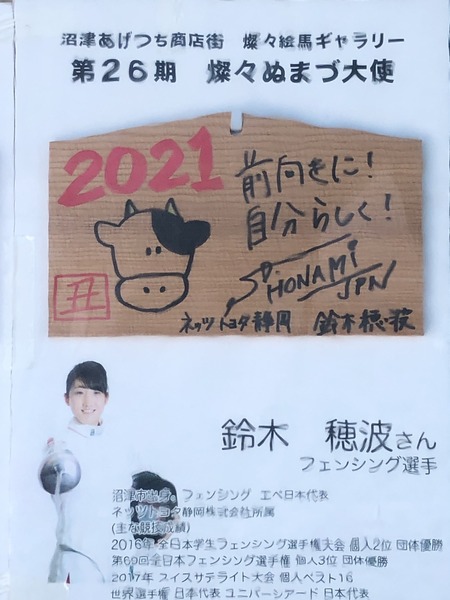 沼津あげつち商店街 燦々絵馬ギャラリー
第26期 燦々ぬまづ大使
2021
前向きに!
自分らしく!
HONAMI
JPN
丑
ネッツトヨタ静岡 鈴木穂波
鈴木 穂波さん
フェンシング選手
沼津市出身。フェンシング エペ日本代表
ネッツトヨタ静岡株式会社所属
(主な競技成績)
2016年 全日本学生フェンシング選手権大会 個人2位 団体優勝
第69回全日本フェンシング選手権 個人3位 団体優勝
2017年 スイスサテライト大会 個人ベスト16
世界選手権 日本代表 ユニバーシアード 日本代表